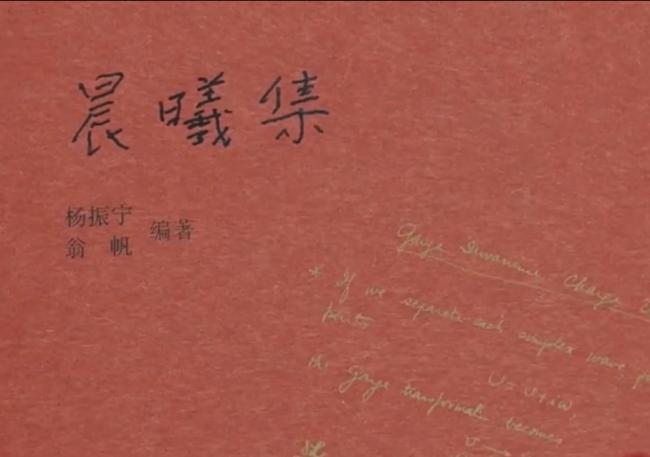 晨曦集
杨振宁
翁帆 编著
Gauge Invariance Charge
* If we separate each complex wave
parts
U = v + iw,
the Gauge transformati becomes